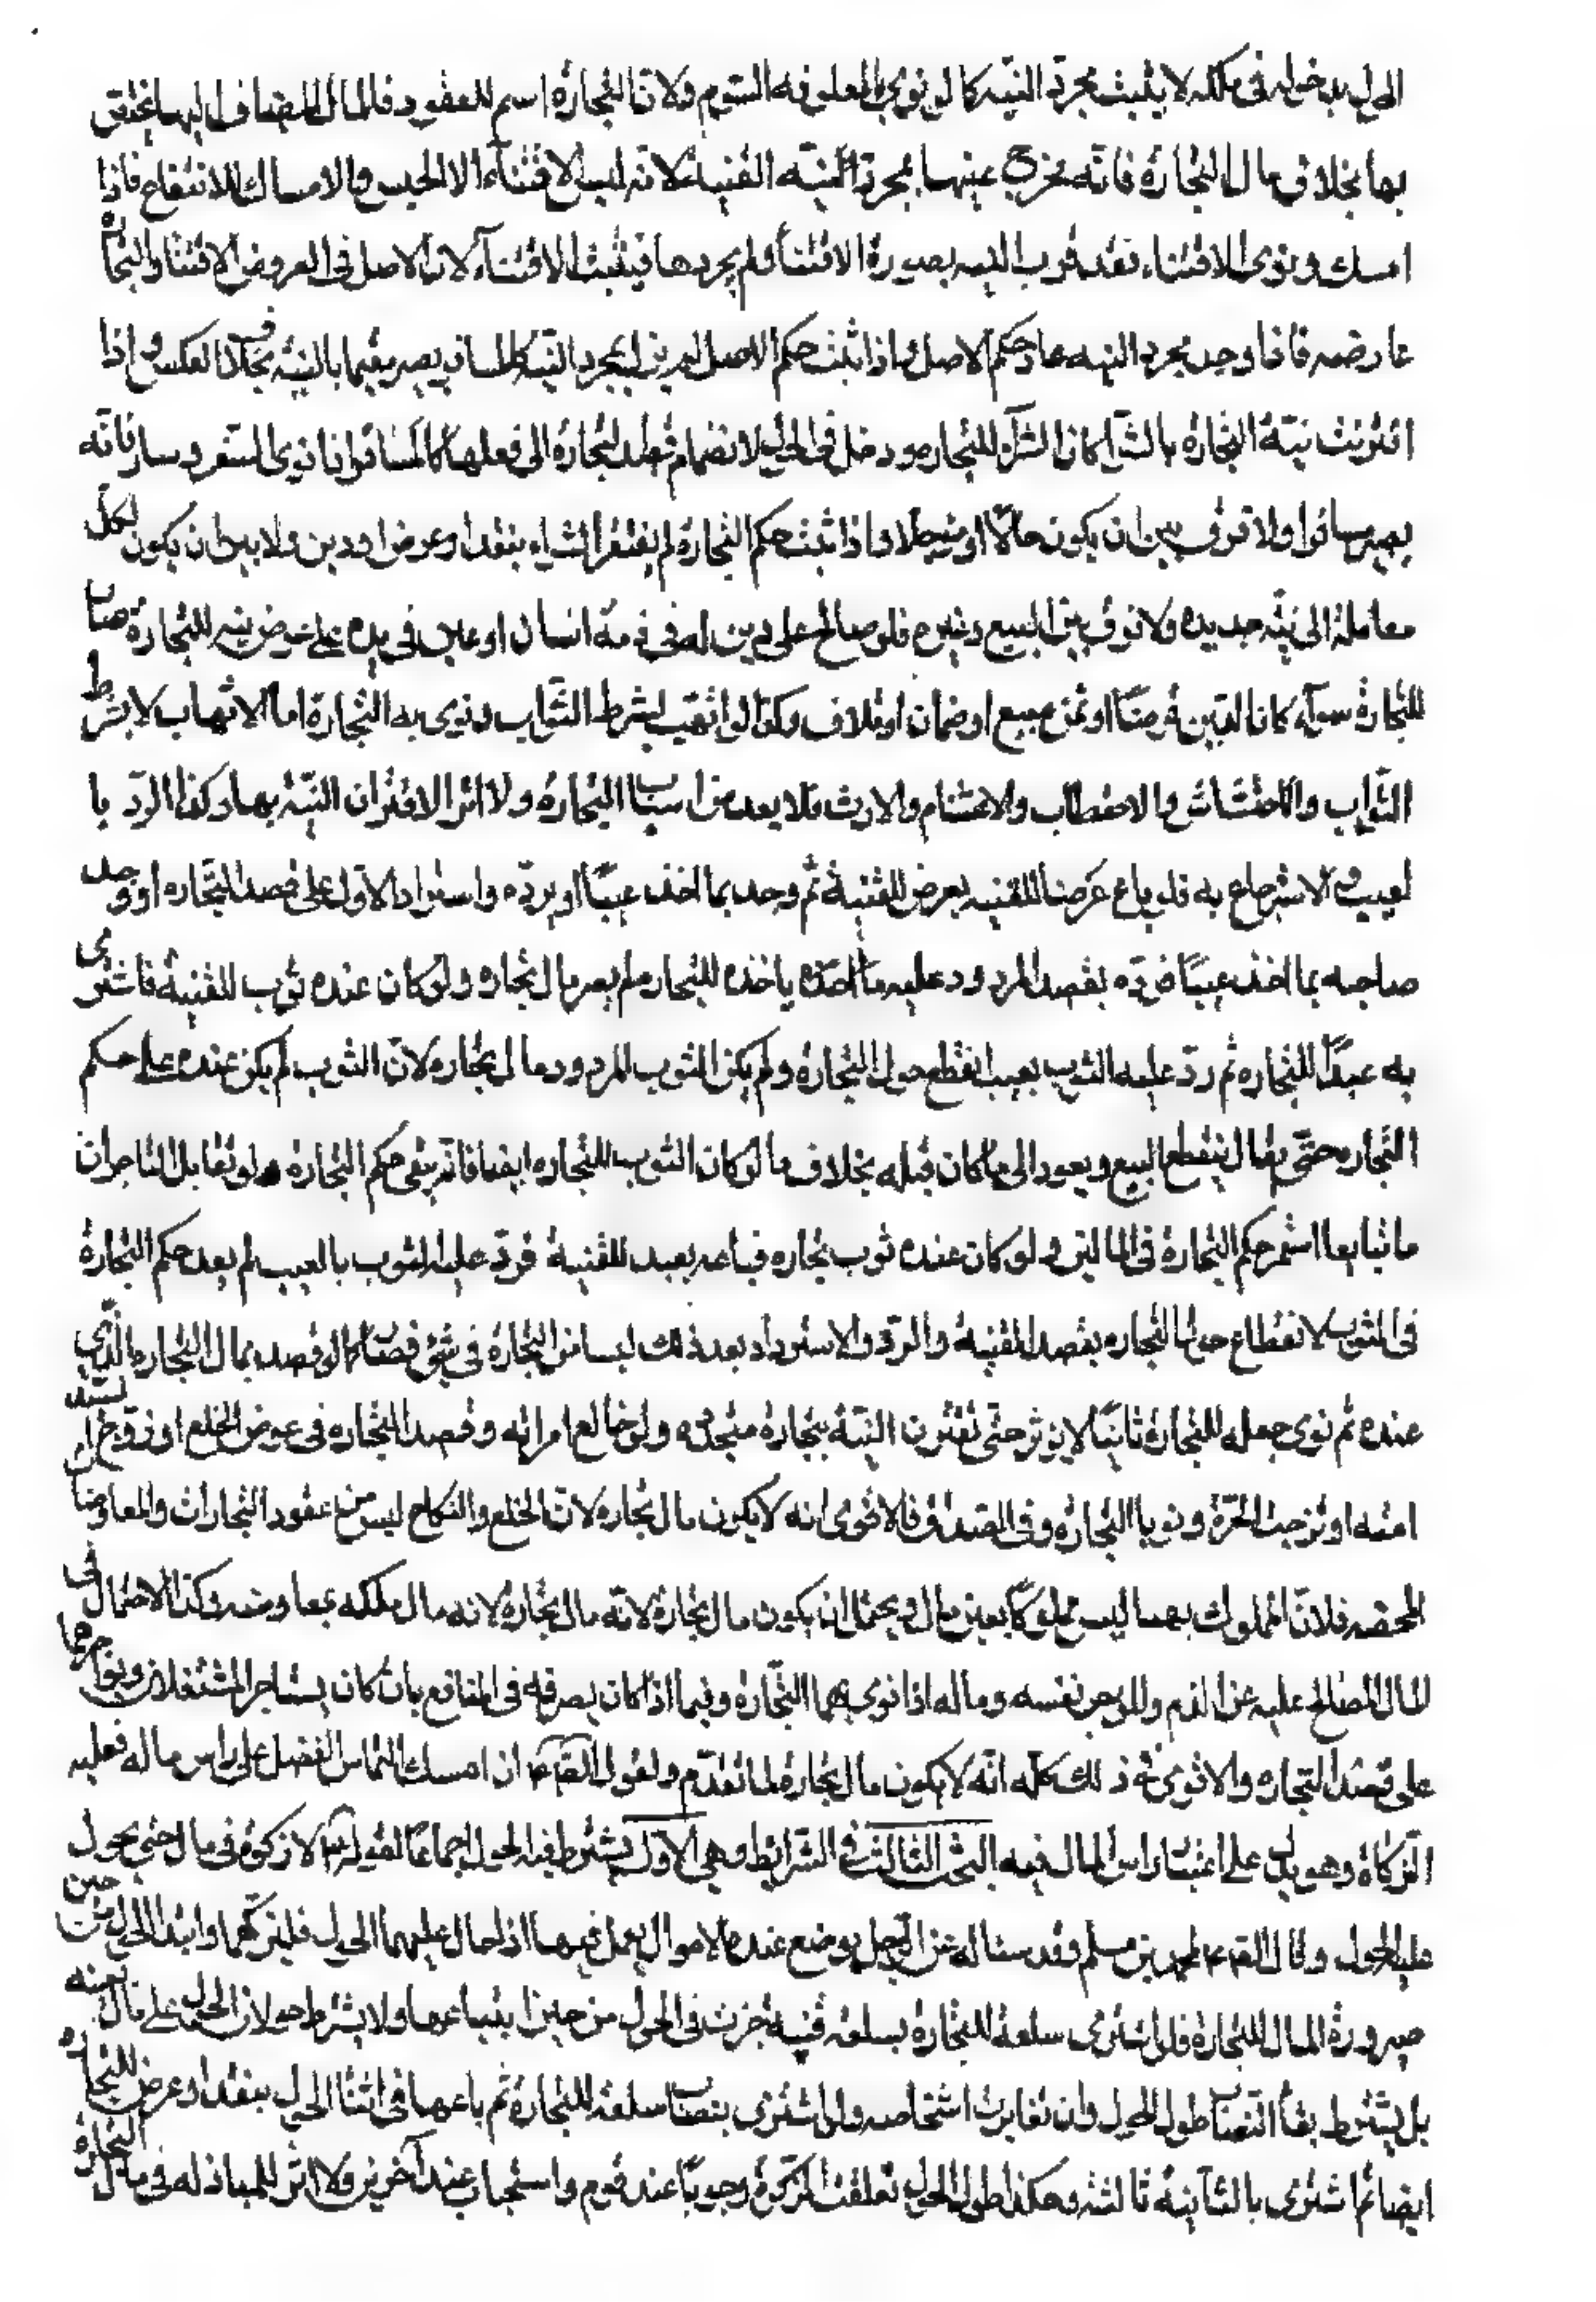 الحول بدخوله فى ملكه لا يثبت بمجرد النيه كما لو نوى بالمعلوفه السوم ولان التجارة اسم للعقود فالمال المضاف اليها يتحقق
بها بخلاف مال التجارة فانه يخرج عنها بمجرد النيه القنية لانه ليس الاقتناء الا الحبس والامساك للانتفاع فاذا
امسك ونوى الاقتناء فقد قرب النيه بصورة الاقتناء ولم يجردها فيثبت الاقتناء لان الاصل فى العروض الاقتناء والتجارة
عارضه فاذا وجد مجرد النيه عاد حكم الاصل واذا ثبت حكم الاصل لم يزل بمجرد النيه كالمسافر يصير مقيما بالنيه بخلاف العكس واذا
اقترنت نية التجارة بالشراء كان الشراء للتجاره ودخل فى الحول لانضمام قصد التجارة الى فعلها كالمسافر اذا نوى السفر وسار فانه
يصير مسافرا ولا فرق بين ان يكون حالا او مؤجلا واذا ثبت حكم التجارة لم يفتقر الشراء بنقد او عرض او دين ولا بين ان يكون لكل
معاملة الى نيه جديده ولا فرق بين البيع وغيره فلو صالح على دين له فى ذمة انسان او عين فى يده على عوض بنيه للتجارة صار
للتجارة سواء كان الدين قرضا او ثمن مبيع او ضمان اوتلاف وكذا لو اتهب بشرط الثواب ونوى به التجارة اما الاتهاب لا بشرط
الثواب والاحتشاش والاحتطاب والاغتنام والارث فلا يعد من اسباب التجارة ولا اثر لاقتران النيه بها وكذا الرد با
لعيب والاسترجاع به فلو باع عرضا للقنيه بعرض للقنية ثم وجد بما اخذ عيبا او يرده واسترد الاول على قصد التجاره او وجد
صاحبه بما اخذ عيبا فرده بقصد المردود عليه ياخذه للتجاره لم يصر مال تجاره ولو كان عنده ثوب للقنية فاشترى
به عبدا للتجاره ثم رد عليه الثوب بعيب انقطع حول التجارة ولم يكن الثوب المردود مال تجاره لان الثوب لم يكن عنده على حكم
التجاره حتى يقال ينقطع البيع ويعود الى ما كان قبله بخلاف ما لو كان الثوب للتجاره ايضا فانه يبقى حكم التجارة ولو تقابل التاجران
ما تبايعا استمر حكم التجارة فى المالين ولو كان عنده ثوب تجاره فباعه بعبد للقنية فرد عليه الثوب بالعيب لم يعد حكم التجارة
فى الثوب لانقطاع حول التجاره بقصد القنية والرد والاسترداد بعد ذلك ليسا من التجارة فى شئ فصار كما لو قصد بمال التجاره الذى
عنده ثم نوى جعله للتجارة ثانيا لا يؤثر حتى تقترن النية بتجارة متجدده ولو خالع امراته وقصد التجاره فى عوض الخلع او زوج السيد
امته او تزوجت الحرة ونويا التجارة وفى الصداق فالاقوى انه لا يكون مال تجاره لان الخلع والنكاح ليس من عقود التجارات والمعاوضات
المحضه فلان المملوك بهما ليس مملوكا بعين مال ويحتمل ان يكون مال تجارة لانه مال تجارة لانه مال ملكه بمعاوضه وكذا الاحتمال فى
المال المصالح عليه عن الدم والموجر نفسه وماله اذا نوى بهما التجارة وفيما اذا كان يصرفه فى المنافع بان كان يستاجر المستغلات ويؤاجرها
على قصد التجاره والاقوى فى ذلك كله انه لا يكون مال تجارة لما تقدم ولقول الصادق ع اذا امسك التماس الفضل على راس ماله فعليه
الزكاة وهو يدل على اعتبار راس المال فيه البحث الثالث فى الشرايط وهى الاول يشترط فيه الحول اجماعا لقوله ع لا زكوة فى مال حتى يحول
عليه الحول وقال الصادق ع لمحمد بن مسلم وقد ساله عن الرجل يوضع عنده الاموال يعمل فيها اذا حال عليها الحول فليزكها وابتداء الحول من حين
صيرورة المال للتجارة فلو اشترى سلعة للتجارة بسلعه قنية جرت فى الحول من حين ابتياعها ولا يشترط حولان الحول على مال بعينه
بل يشترط بقاء النصاب طول الحول وان تغايرت اشخاصه ولو اشترى بنصاب سلعه للتجارة ثم باعها فى اثناء الحول بنقد او عرض للتجارة
ايضا ثم اشترى بالثانية ثالثه وهكذا طول الحول تعلقت الزكوة وجوبا عند قوم واستحبابا عند آخرين ولا اثر للمبادله فى مال التجارة